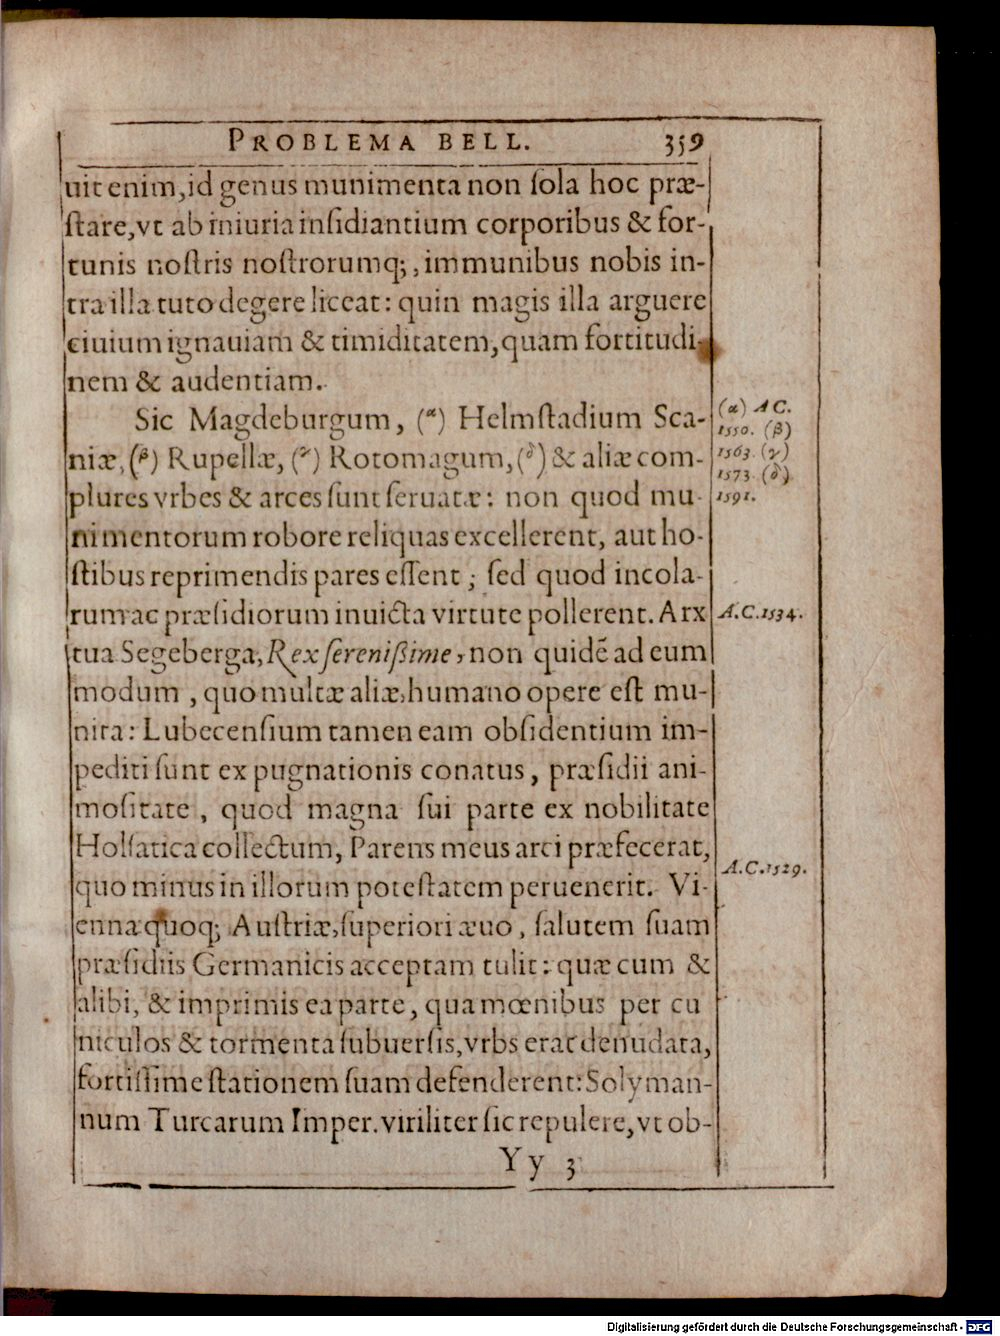 PROBLEMA BELL. 359
uit enim, id genus munimenta non ſola hoc præ-
ſtare, vt ab iniuria inſidiantium corporibus & for-
tunis noſtris noſtrorumq;, immunibus nobis in-
tra illa tuto degere liceat: quin magis illa arguere
ciuium ignauiam & timiditatem, quam fortitudi-
nem & audentiam.
Sic Magdeburgum, (α) Helmſtadium Sca-
niæ, (β) Rupellæ, (γ) Rotomagum, (δ) & aliæ com-
plures vrbes & arces ſunt ſeruatæ: non quod mu-
nimentorum robore reliquas excellerent, aut ho-
ſtibus reprimendis pares eſſent; ſed quod incola-
rum ac præſidiorum inuicta virtute pollerent. Arx
tua Segeberga, Rex ſereniſſime, non quidē ad eum
modum, quo multæ aliæ, humano opere eſt mu-
nita: Lubecenſium tamen eam obſidentium im-
pediti ſunt expugnationis conatus, præſidii ani-
moſitate, quod magna ſui parte ex nobilitate
Holſatica collectum, Parens meus arci præfecerat,
quo minus in illorum poteſtatem peruenerit. Vi-
enna quoq; Auſtriæ, ſuperiori æuo, ſalutem ſuam
præſidiis Germanicis acceptam tulit: quæ cum &
alibi, & imprimis ea parte, qua mœnibus per cu
niculos & tormenta ſubuerſis, vrbs erat denudata,
fortiſſime ſtationem ſuam defenderent: Solyman-
num Turcarum Imper. viriliter ſic repulere, vt ob-
Yy 3
(α) A C.
1550. (β)
1563. (γ)
1573. (δ)
1591.
A.C. 1534.
A.C. 1529.
Digitalisierung gefördert durch die Deutsche Forschungsgemeinschaft - DFG